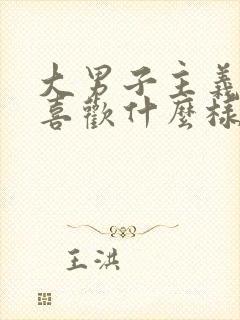 大男子主義
喜歡什麼樣
王洪